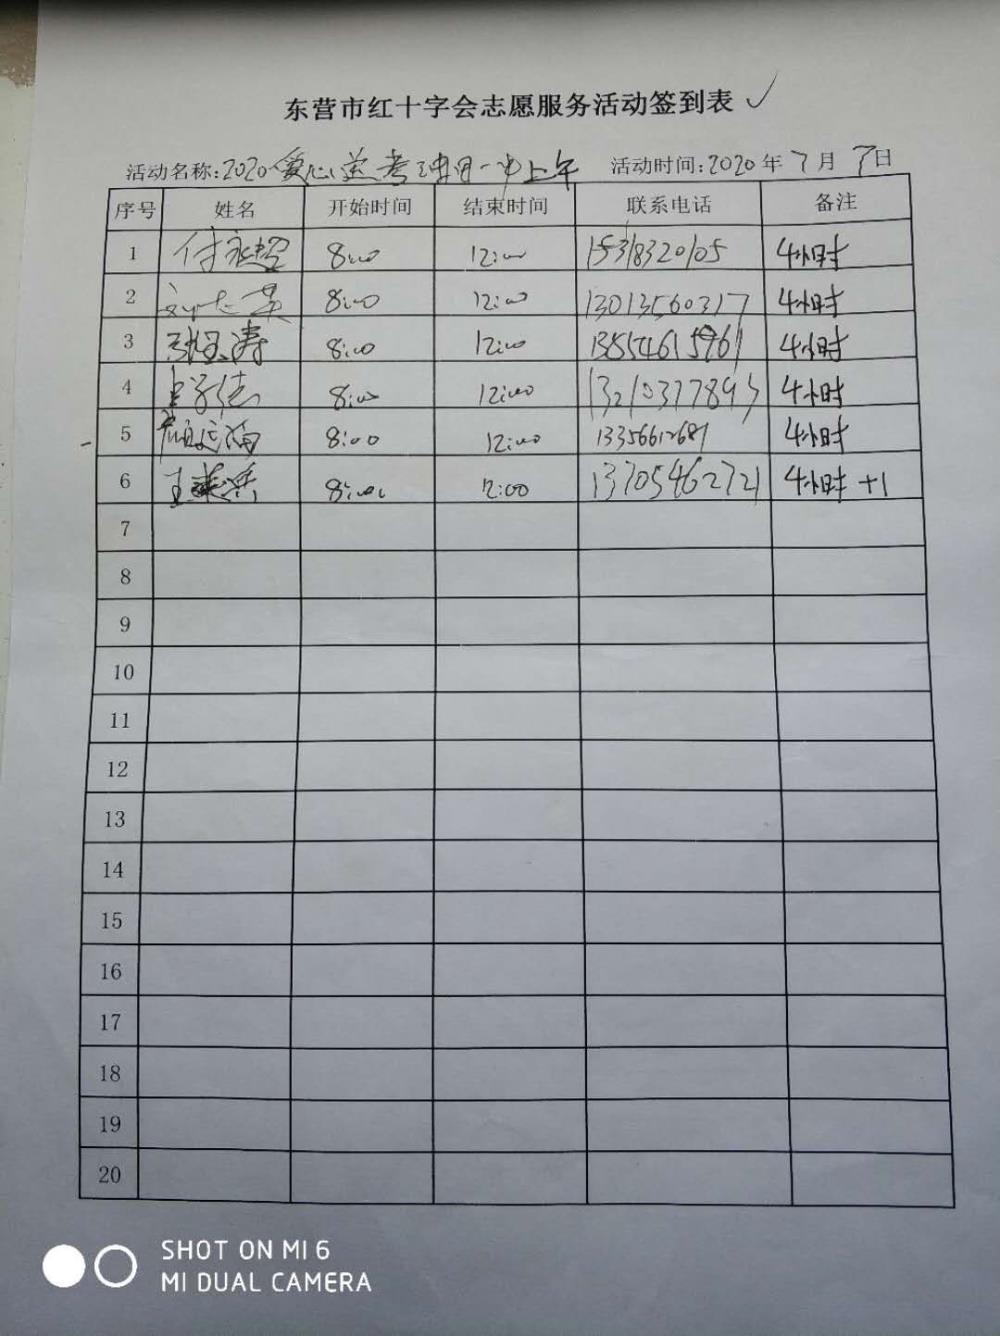 东营市红十字会志愿服务活动签到表
活动名称:2020爱心送考 一中上午 活动时间:2020年7月7日
序号 姓名 开始时间 结束时间 联系电话 备注
1 付 8:00 12:00 15318320105 4小时
2 8:00 12:00 13013560317 4小时
3 涛 8:00 12:00 13554615961 4小时
4 8:00 12:00 13210377893 4小时
5 海 8:00 12:00 13356612681 4小时
6 王 8:00 12:00 13705462721 4小时 +1
7
8
9
10
11
12
13
14
15
16
17
18
19
20
SHOT ON MI 6
MI DUAL CAMERA